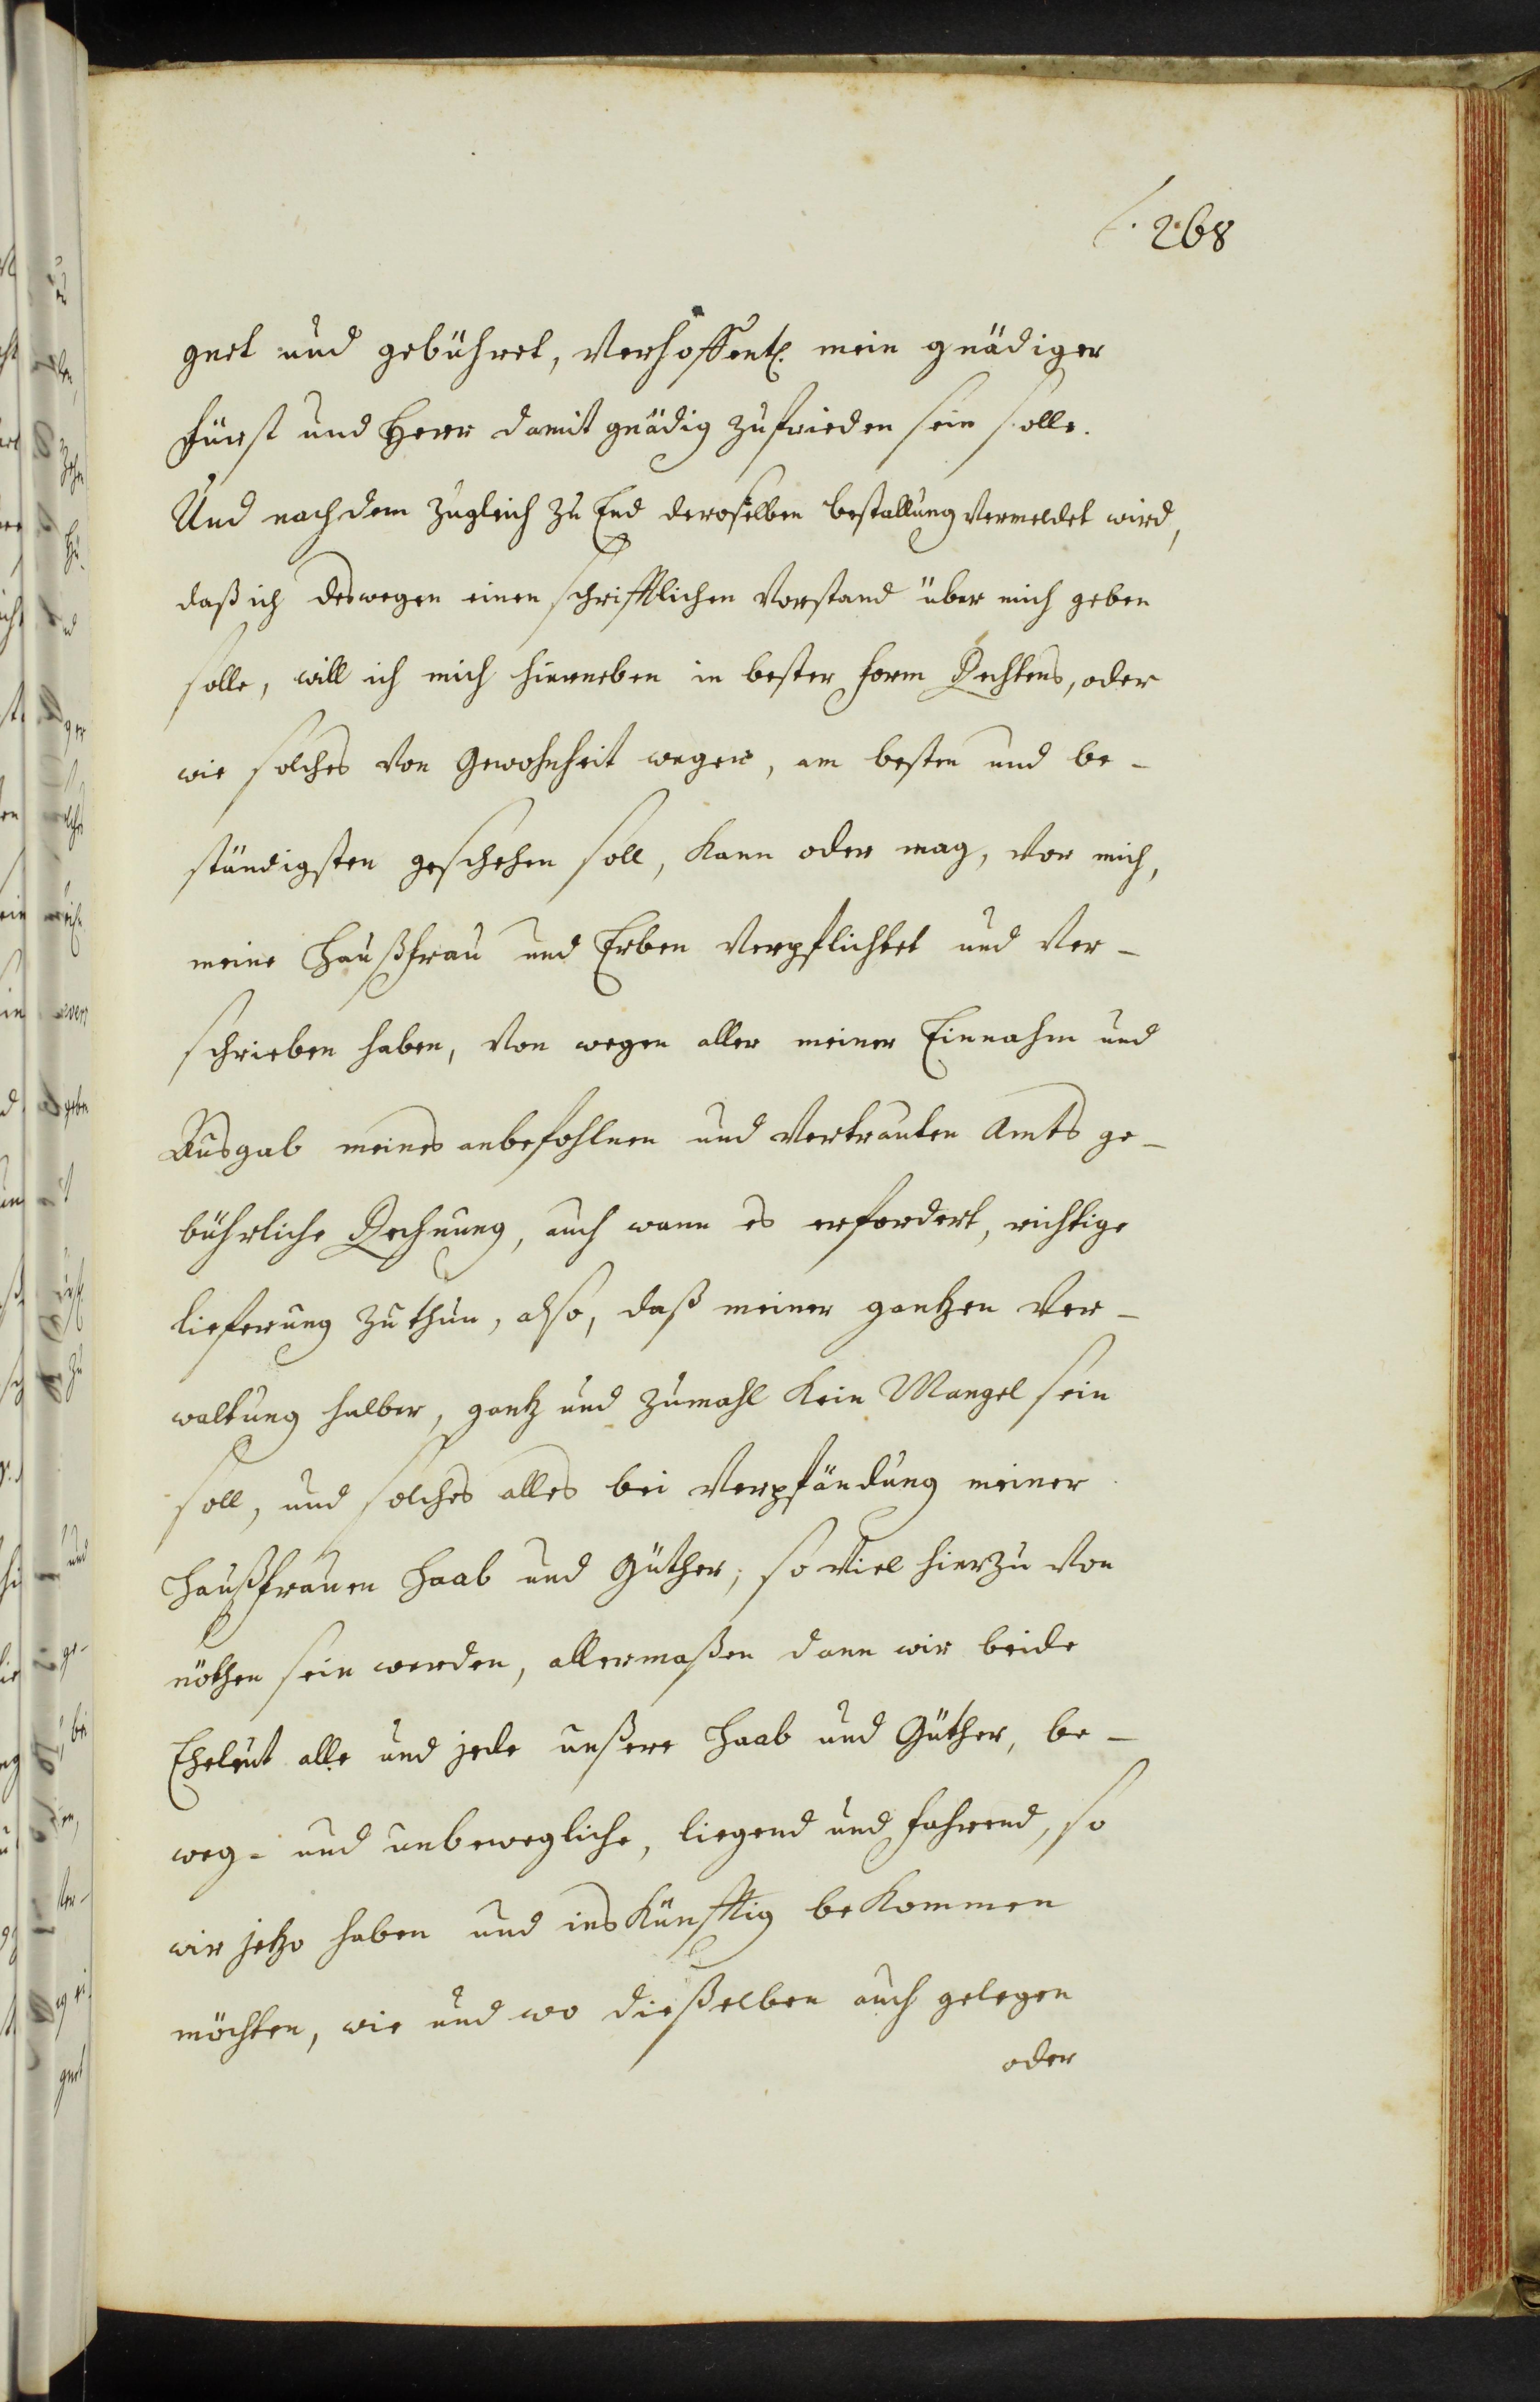 f. 268
gnet und gebühret, Verhoffentl. mein gnädiger
Fürst und Herr damit gnädig zufrieden sein solle.
Und nach dem zugleich zu End deroselben bestallung vermeldet wird,
daß ich deswegen einen schrifftlichen Vorstand über mich geben
solle, will ich mich hierneben in bester form Rechtens, oder
wie solches von Gewohnheit wegen, am besten und be-
ständigsten geschehen soll, kann oder mag, vor mich,
meine Haußfrau und Erben verpflichtet und ver-
schrieben haben, von wegen aller meiner Einnahm und
Ausgab meines anbefohlnen und vertrauten Amts ge-
bührliche Rechnung, auch wann es erfordert, richtige
lieferung zu thun, also, daß meiner gantzen Ver-
waltung halber, gantz und zumahl kein Mangel sein
soll, und solches alles bei Verpfändung meiner
Haußfrauen Haab und Güther, so viel hierzu von
nöthen sein werden, allermaßen dann wir beide
Eheleut alle und jede unßere Haab und Güther, be-
weg- und unbewegliche, liegend und fahrend, so
wir jetzo haben und ins künfftig bekommen
möchten, wie und wo dießelben auch gelegen
oder